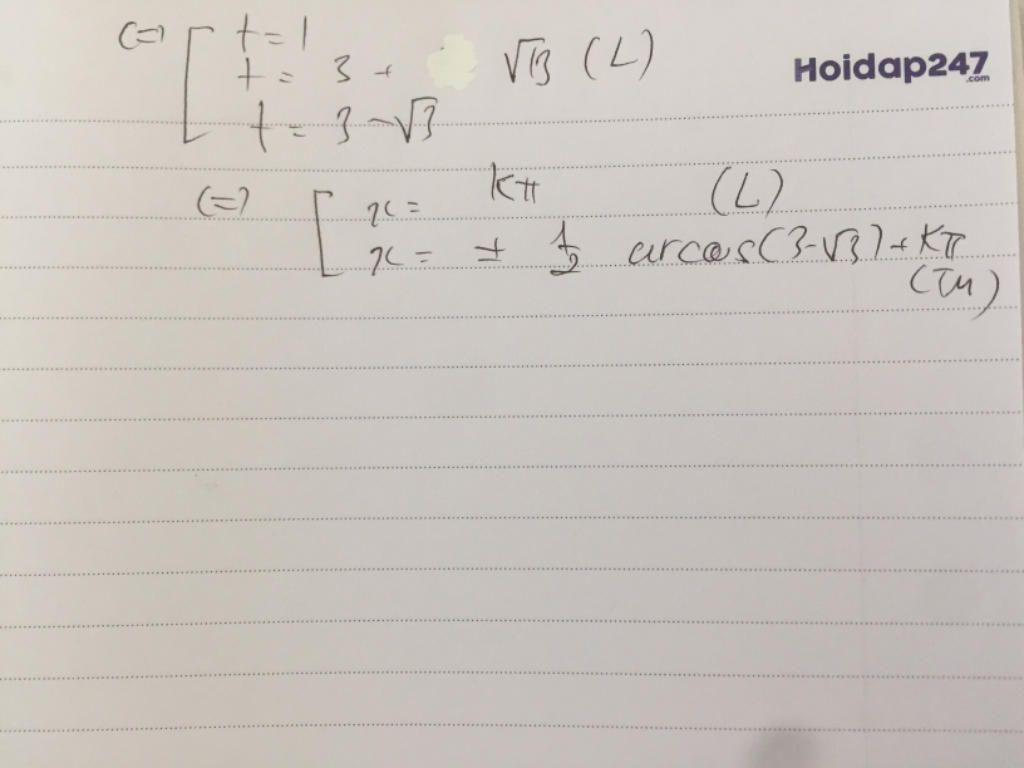 (=) [ t = 1
t = 3 + √13 (L)
t = 3 - √3
Hoidap247
.com
(=) [ x = kπ (L)
x = ± 1/2 arcos(3-√3) + kπ
(TM)